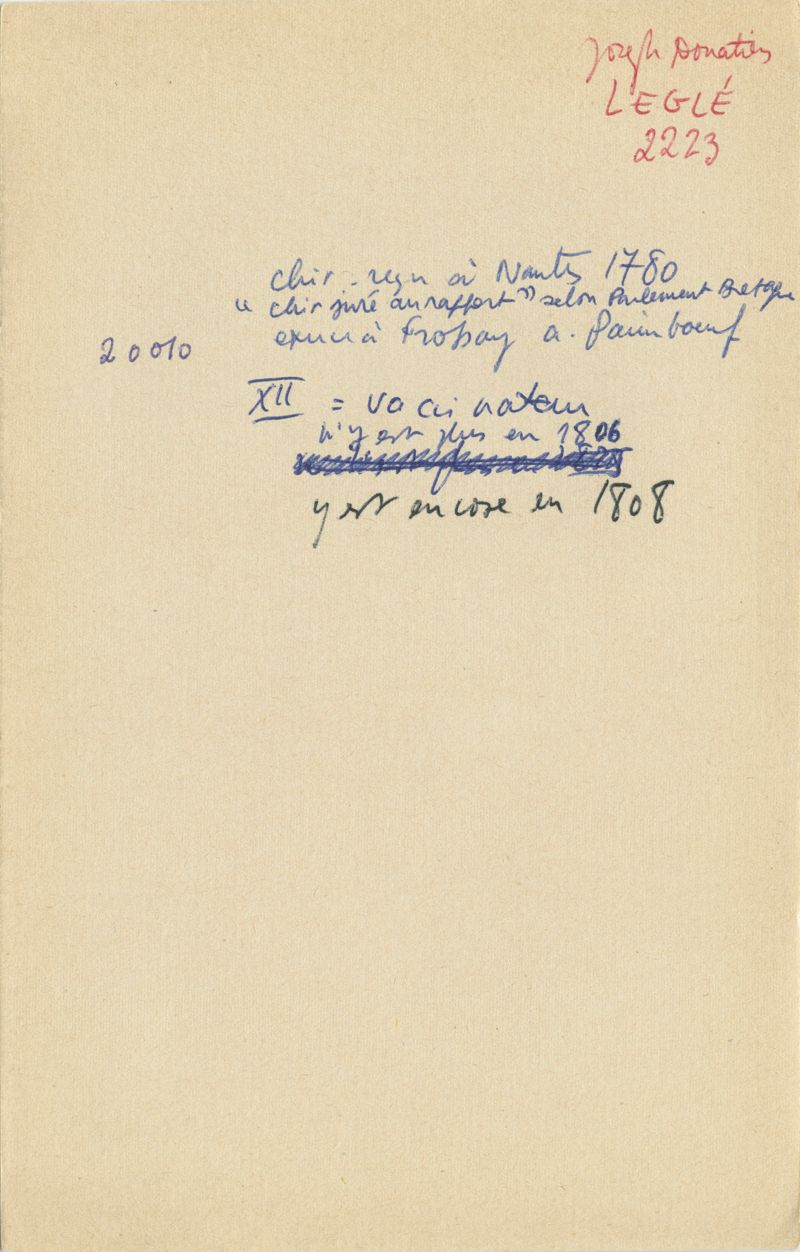 Joseph Donatien
LEGLÉ
2223
chir. reçu à Nantes 1780
" chir juré au rapport " selon Parlement Bretagne
exerce à Frossay a. Paimboeuf
20010
XII = vaccinateur
n'y est plus en 1806
y est encore en 1808